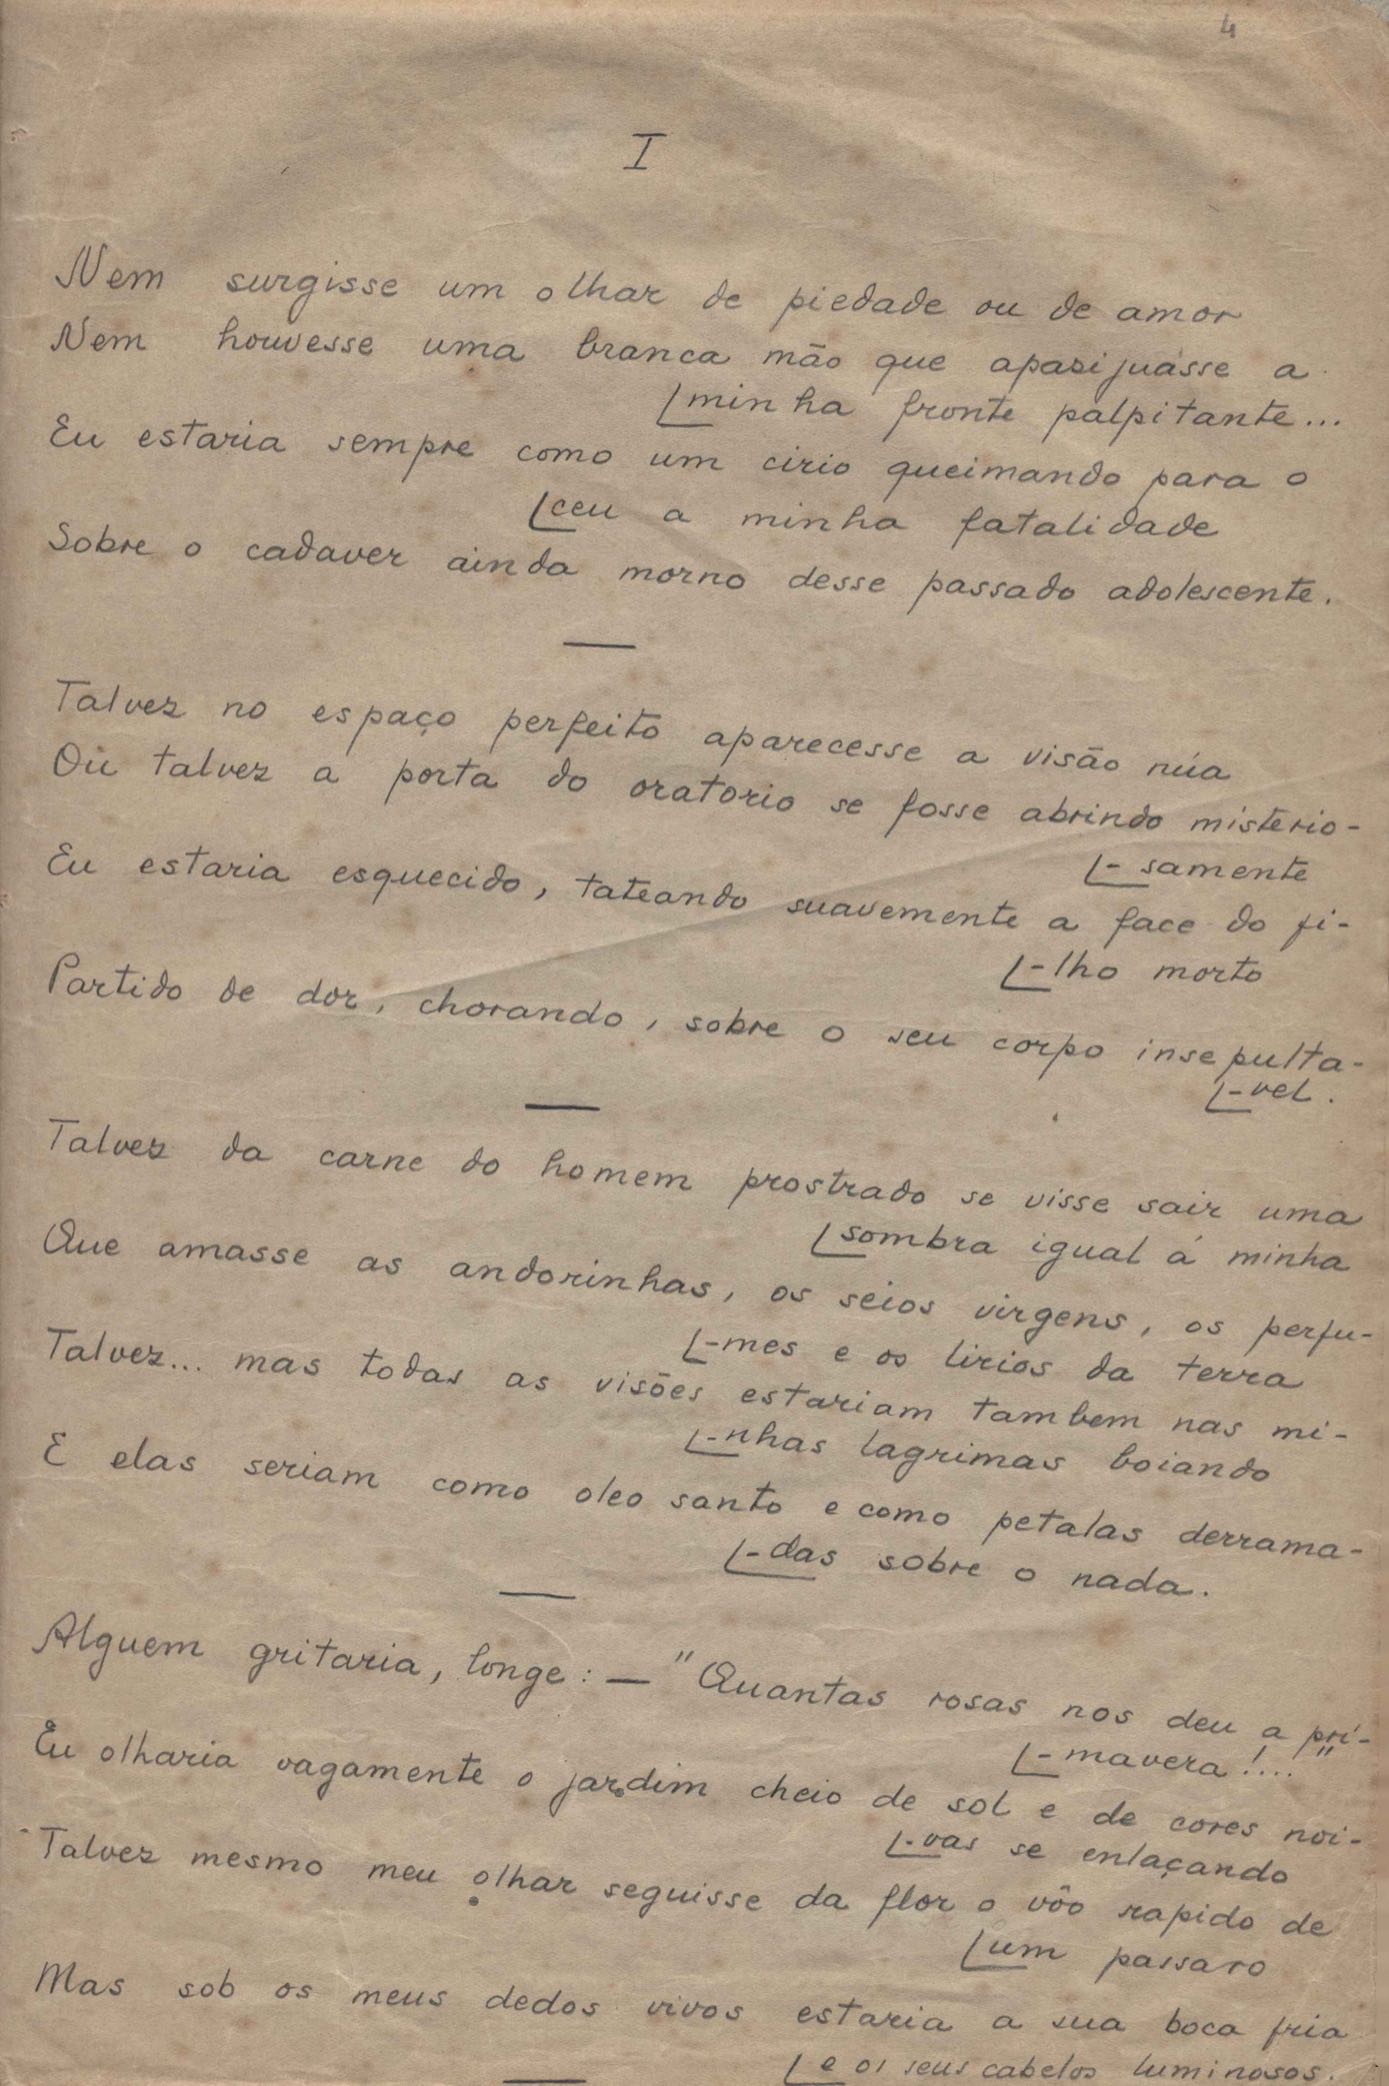 4
I
Nem surgisse um olhar de piedade ou de amor
Nem houvesse uma branca mão que apasijuásse a
[minha fronte palpitante...
Eu estaria sempre como um cirio queimando para o
[ceu a minha fatalidade
Sobre o cadaver ainda morno desse passado adolescente.
—
Talvez no espaço perfeito aparecesse a visão núa
Ou talvez a porta do oratorio se fosse abrindo misterio-
[-samente
Eu estaria esquecido, tateando suavemente a face do fi-
[-lho morto
Partido de dor, chorando, sobre o seu corpo insepulta-
[-vel.
—
Talvez da carne do homem prostrado se visse sair uma
[sombra igual á minha
Que amasse as andorinhas, os seios virgens, os perfu-
[-mes e os lirios da terra
Talvez... mas todas as visões estariam tambem nas mi-
[-nhas lagrimas boiando
E elas seriam como oleo santo e como petalas derrama-
[-das sobre o nada.
—
Alguem gritaria, longe: — "Quantas rosas nos deu a pri-
[-mavera!..."
Eu olharia vagamente o jardim cheio de sol e de cores noi-
[-vas se enlaçando
Talvez mesmo meu olhar seguisse da flor o vôo rapido de
[um passaro
Mas sob os meus dedos vivos estaria a sua boca fria
[e os seus cabelos luminosos.
—